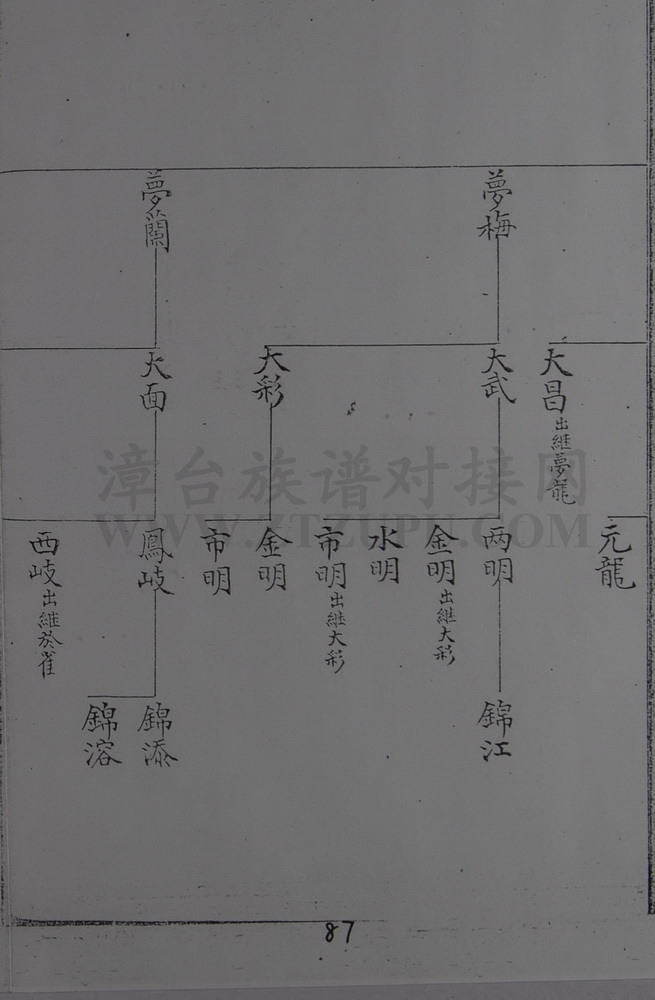 夢梅
夢蘭
大昌出継夢龍
大武
大彩
大面
元龍
两明
金明出継大彩
水明
市明出継大彩
金明
市明
鳳岐
西岐出継於雀
錦江
錦添
錦溶
漳台族谱对接网
WWW.ZTZUPU.COM
87